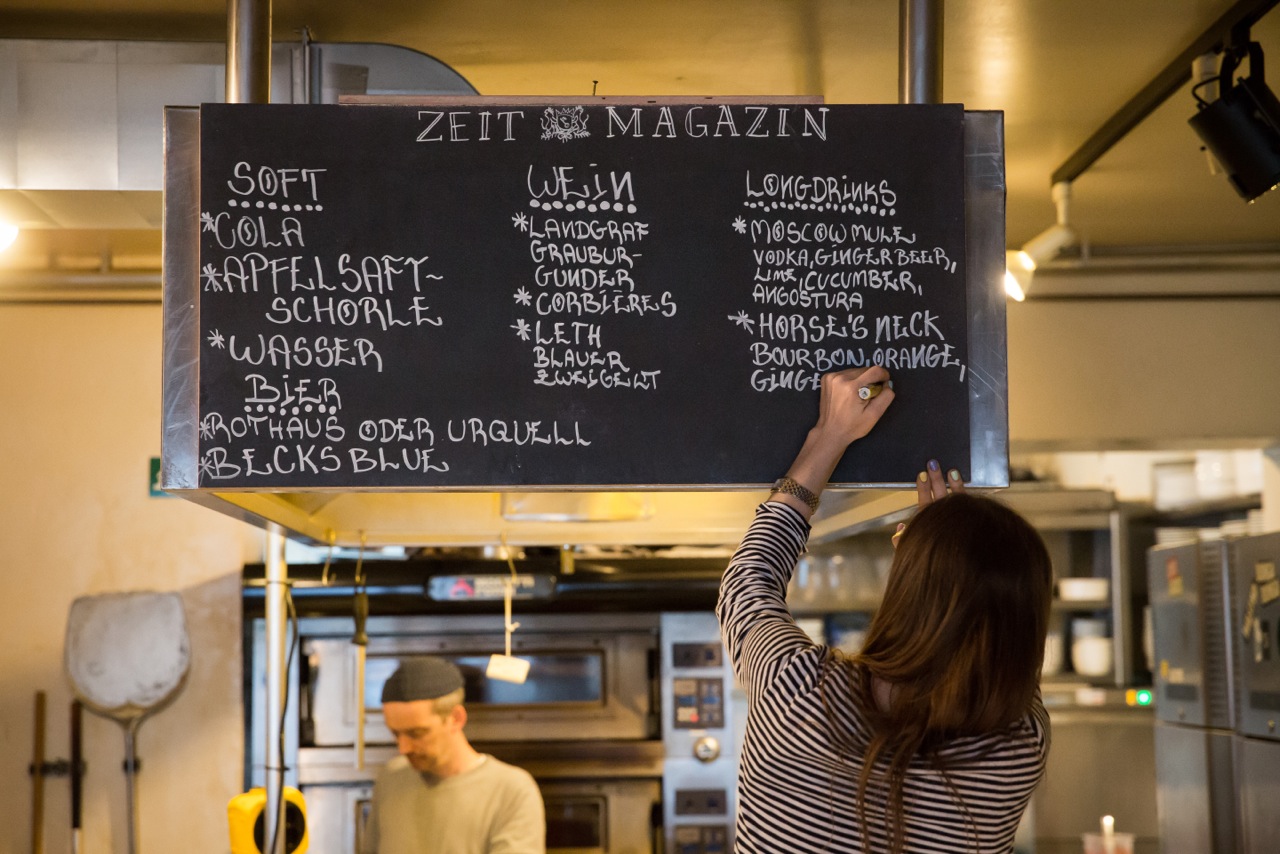 ZEIT MAGAZIN
SOFT
*COLA
*APFELSAFT~
SCHORLE
*WASSER
BIER
*ROTHAUS ODER URQUELL
*BECKS BLUE
WEIN
*LANDGRAF
GRAUBUR-
GUNDER
*CORBIÈRES
*LETH
BLAUER
ZWEIGELT
LONGDRINKS
*MOSCOW MULE
VODKA, GINGER BEER,
LIME, CUCUMBER,
ANGOSTURA
*HORSE'S NECK
BOURBON, ORANGE,
GINGE